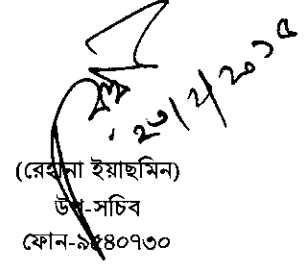 ২০/২/২০১৫
(রেহানা ইয়াছমিন)
উপ-সচিব
ফোন-৯৫৪০৭৩০